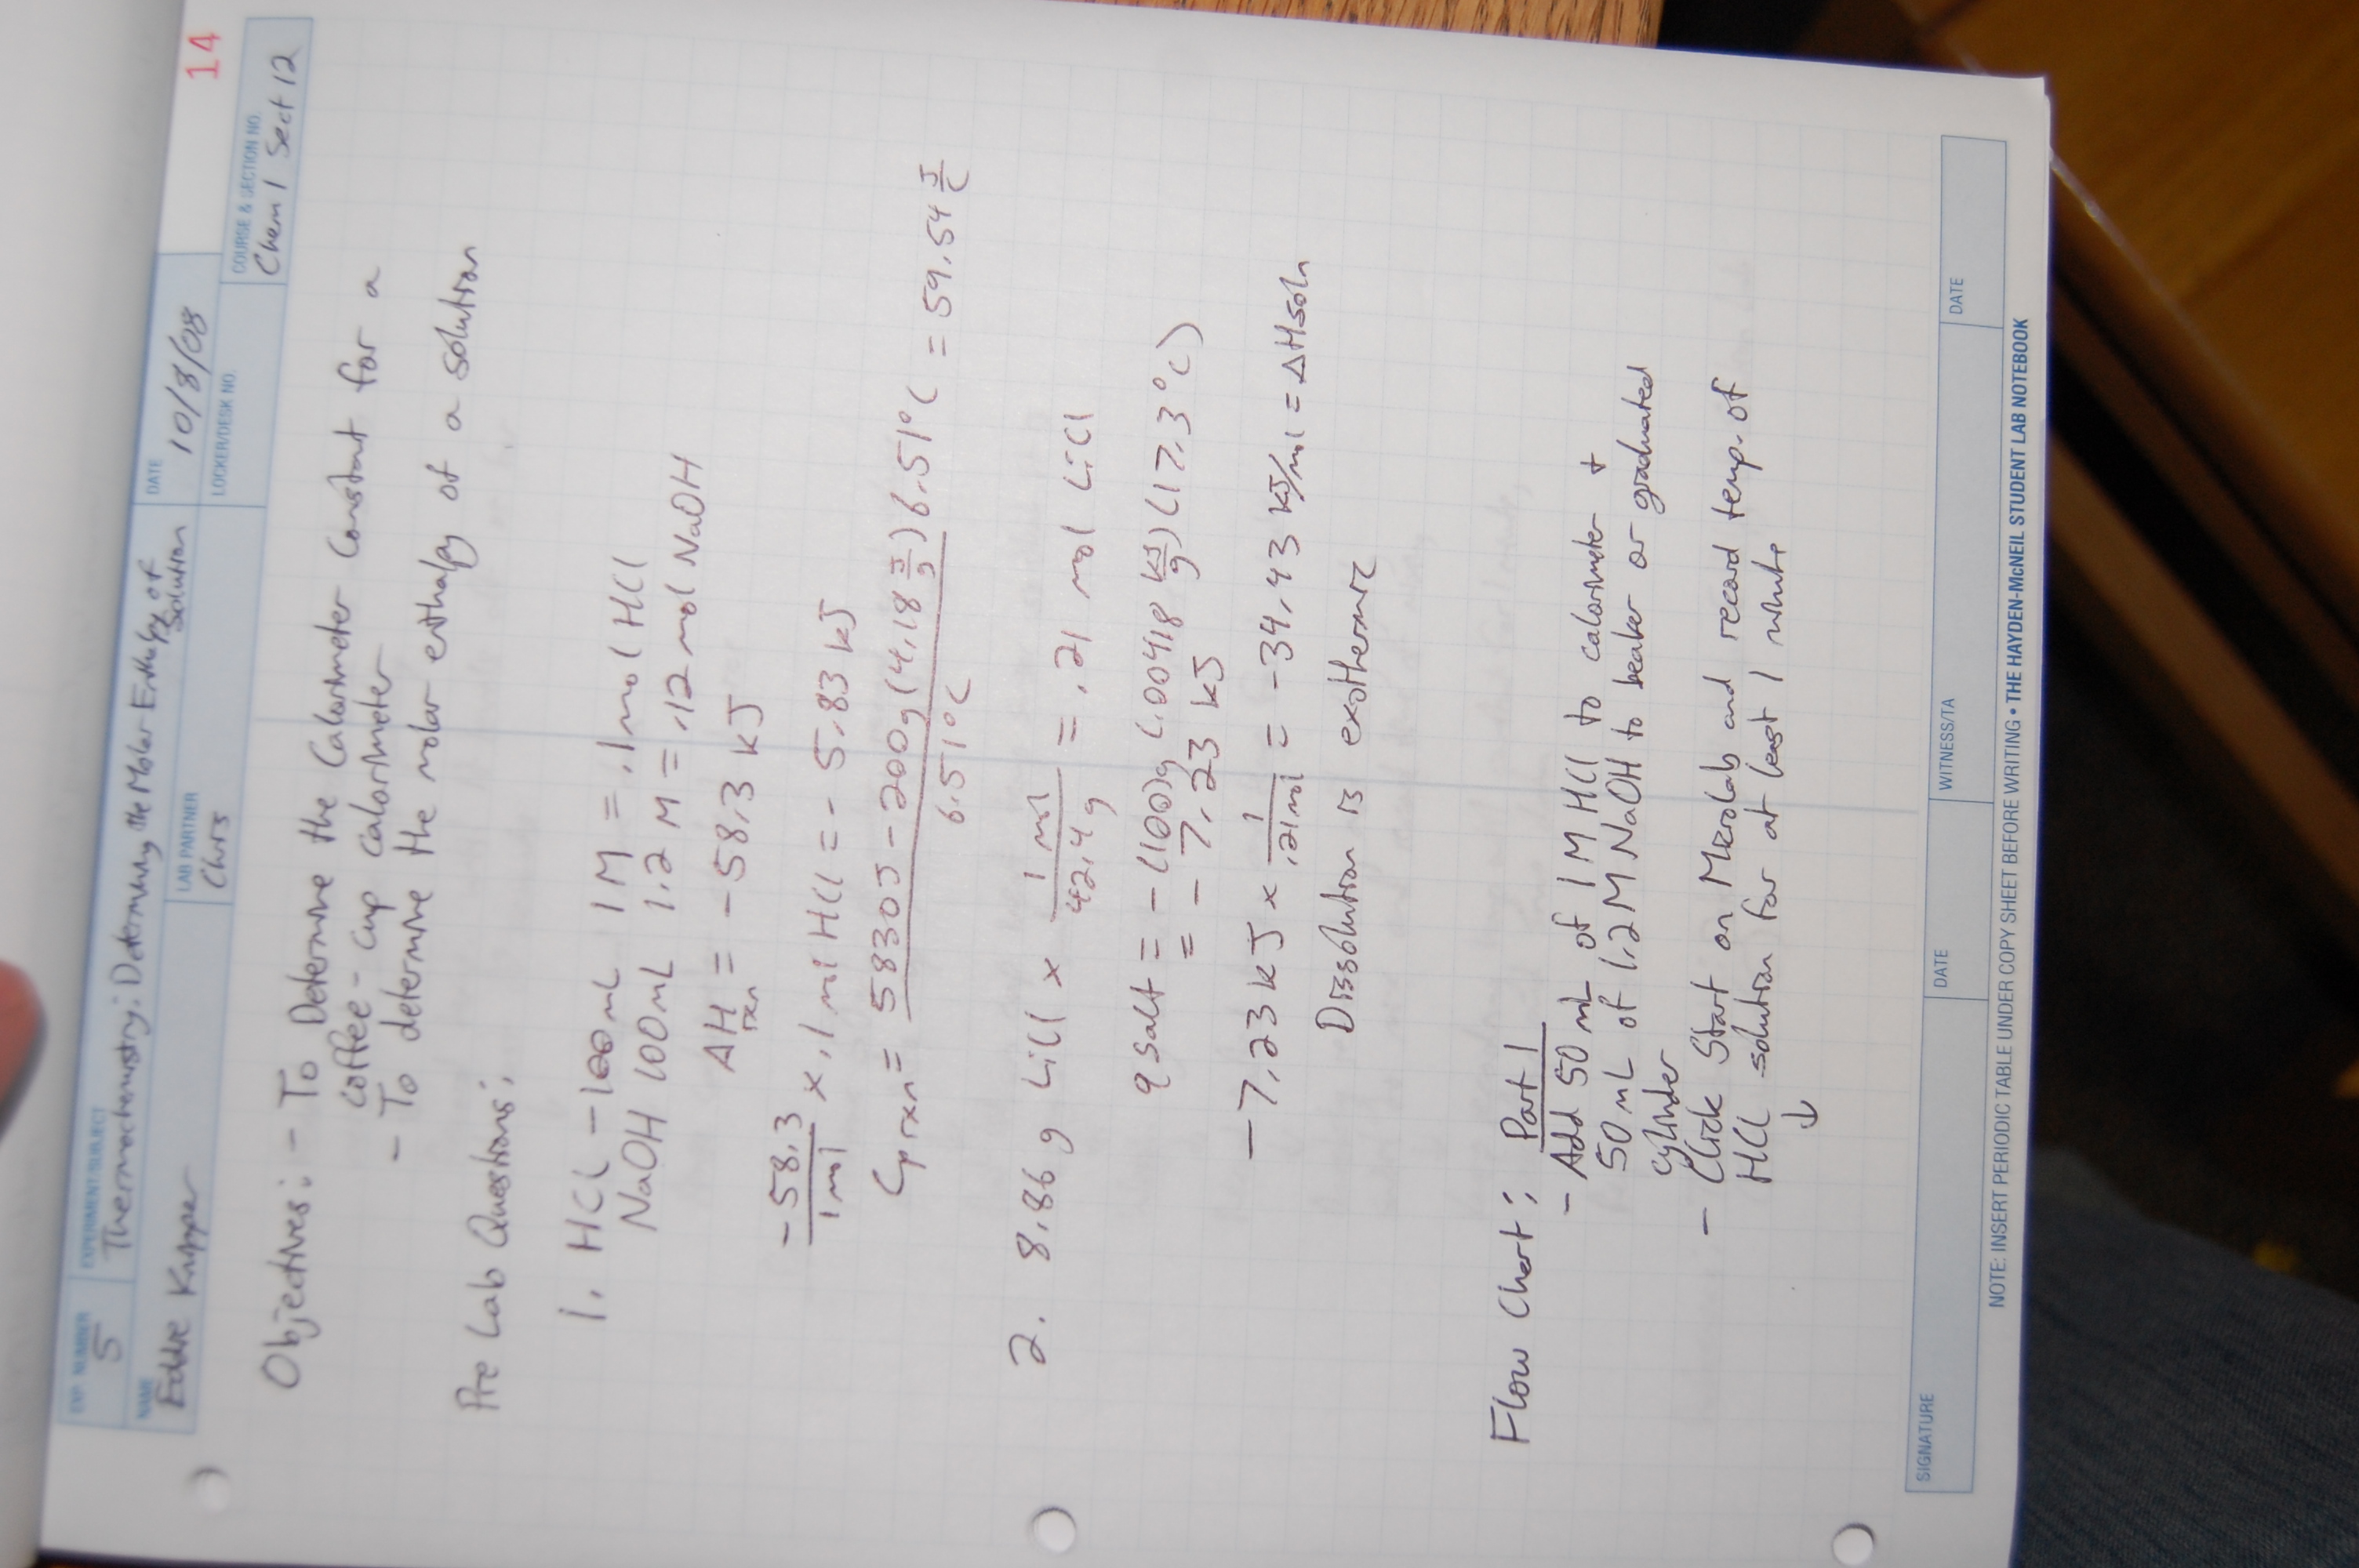 14
EXP. NUMBER
5
EXPERIMENT/SUBJECT
Thermochemistry: Determining the Molar Enthalpy of Solution
DATE
10/8/08
NAME
Eddie
LAB PARTNER
Chris
LOCKER/DESK NO.
COURSE & SECTION NO.
Chem 1 Sect 12
Objectives: - To Determine the Calorimeter Constant for a
coffee-cup calorimeter
- To determine the molar enthalpy of a solution
Pre Lab Questions:
1. HCl - 100 mL 1M = .1 mol HCl
NaOH 100 mL 1.2 M = .12 mol NaOH
ΔH rxn = -58.3 kJ
-58.3/1 mol x .1 mol HCl = -5.83 kJ
Cp rxn = 5830 J - 200g (4.18 J/g) 6.51°C / 6.51°C = 59.54 J/C
2. 8.86 g LiCl x 1 mol/42.4 g = .21 mol LiCl
q salt = -(100)g (.00418 kJ/g)(17.3°C)
= -7.23 kJ
-7.23 kJ x 1/.21 mol = -34.43 kJ/mol = ΔHsoln
Dissolution is exothermic
Flow Chart: Part 1
- Add 50 mL of 1M HCl to calorimeter +
50 mL of 1.2M NaOH to beaker or graduated
cylinder
- Click Start on Microlab and record temp. of
HCl solution for at least 1 minute
↓
SIGNATURE
DATE
WITNESS/TA
DATE
NOTE: INSERT PERIODIC TABLE UNDER COPY SHEET BEFORE WRITING • THE HAYDEN-McNEIL STUDENT LAB NOTEBOOK